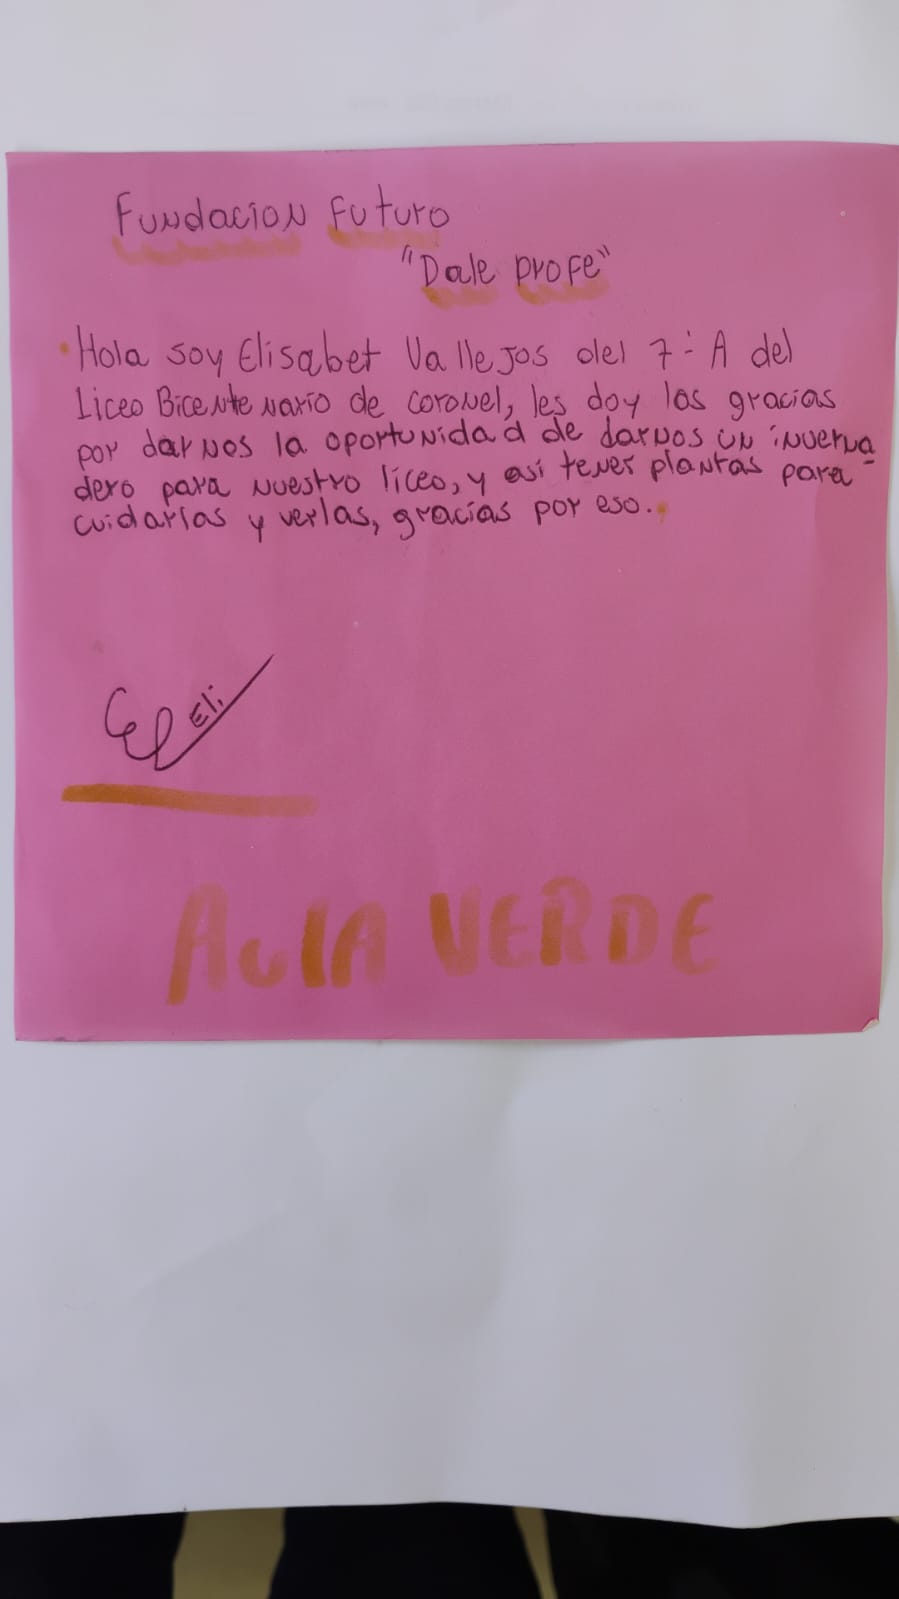 Fundacion Futuro
"Dale profe"
Hola soy Elisabet Vallejos del 7: A del
Liceo Bicentenario de coronel, les doy las gracias
por darnos la oportunidad de darnos un inverna-
dero para nuestro liceo, y así tener plantas para
cuidarlas y verlas, gracias por eso.
Eli
AULA VERDE